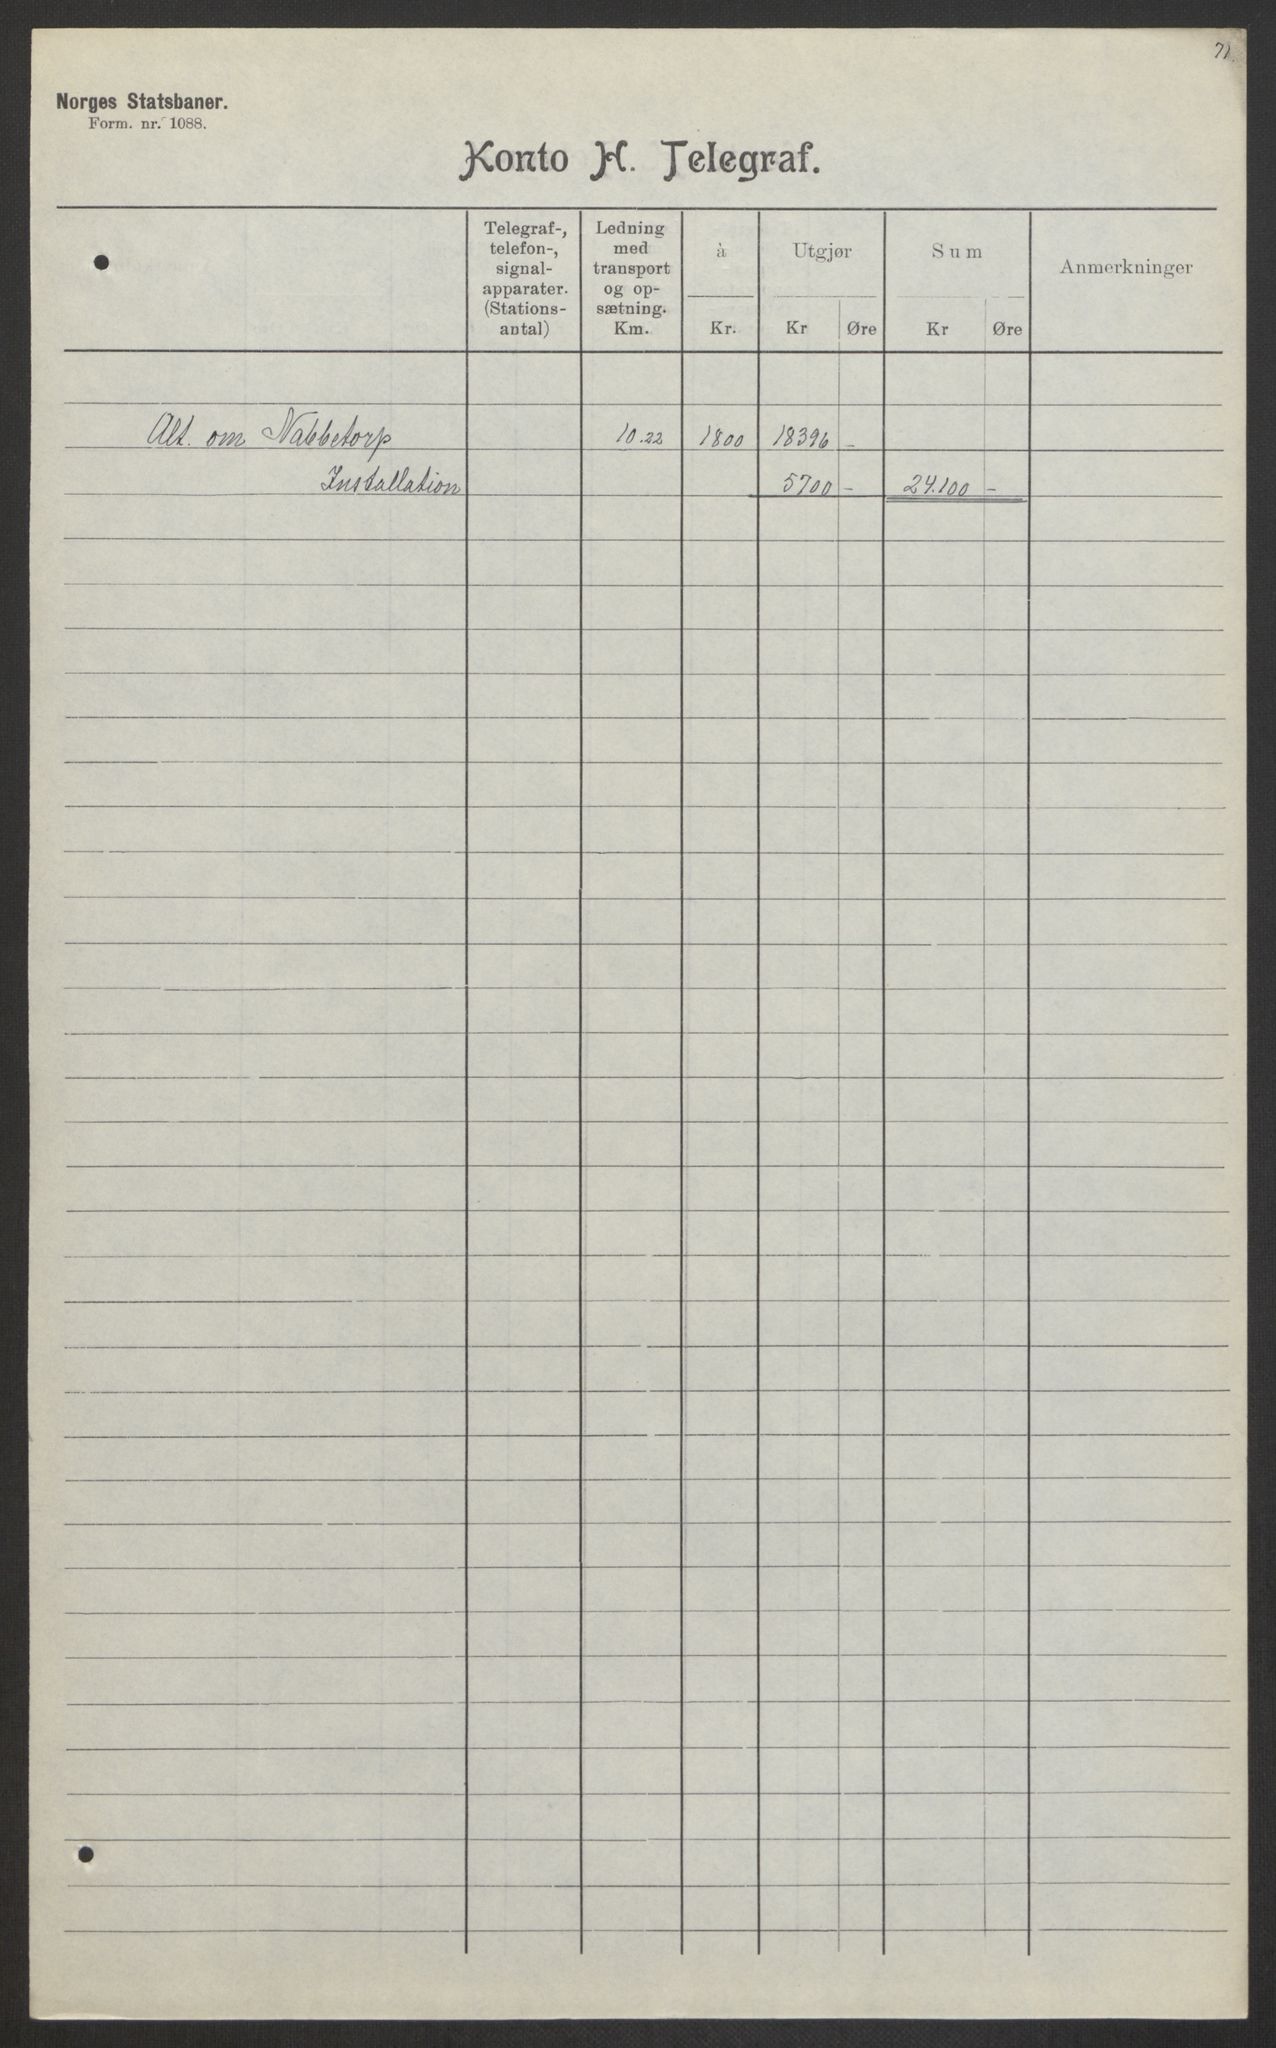 71.
Norges Statsbaner.
Form. nr. 1088.
Konto H. Telegraf.
Telegraf-, telefon-, signal-apparater. (Stations-antal)
Ledning med transport og op-sætning. Km.
à Kr.
Utgjør Kr Øre
Sum Kr Øre
Anmerkninger
Alt. om Nabbetorp 10.22 1800 18396 -
Installation 5700 - 24.100 -